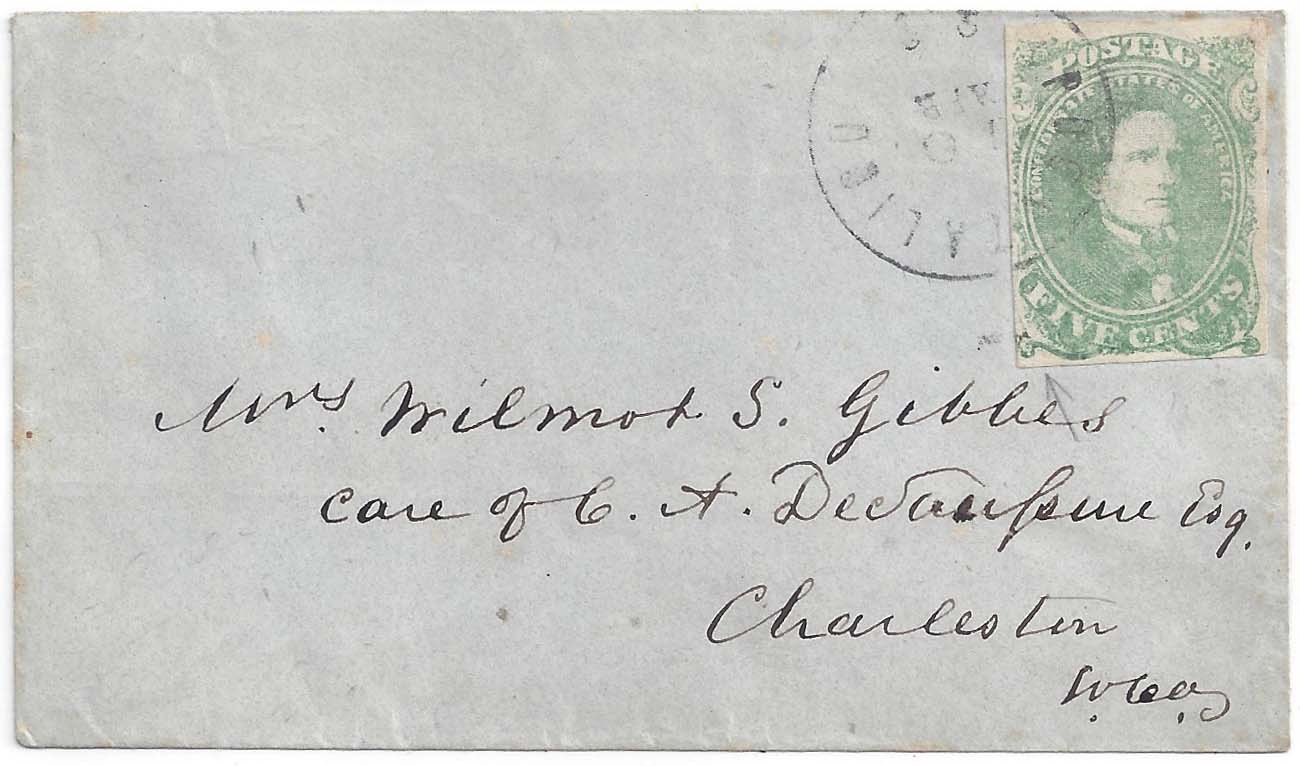 POSTAGE
CONFEDERATE STATES OF AMERICA
FIVE CENTS
POCOTALIGO
Mrs. Wilmot S. Gibbes
care of C. A. DeSaussure Esq.
Charleston
So. Ca.